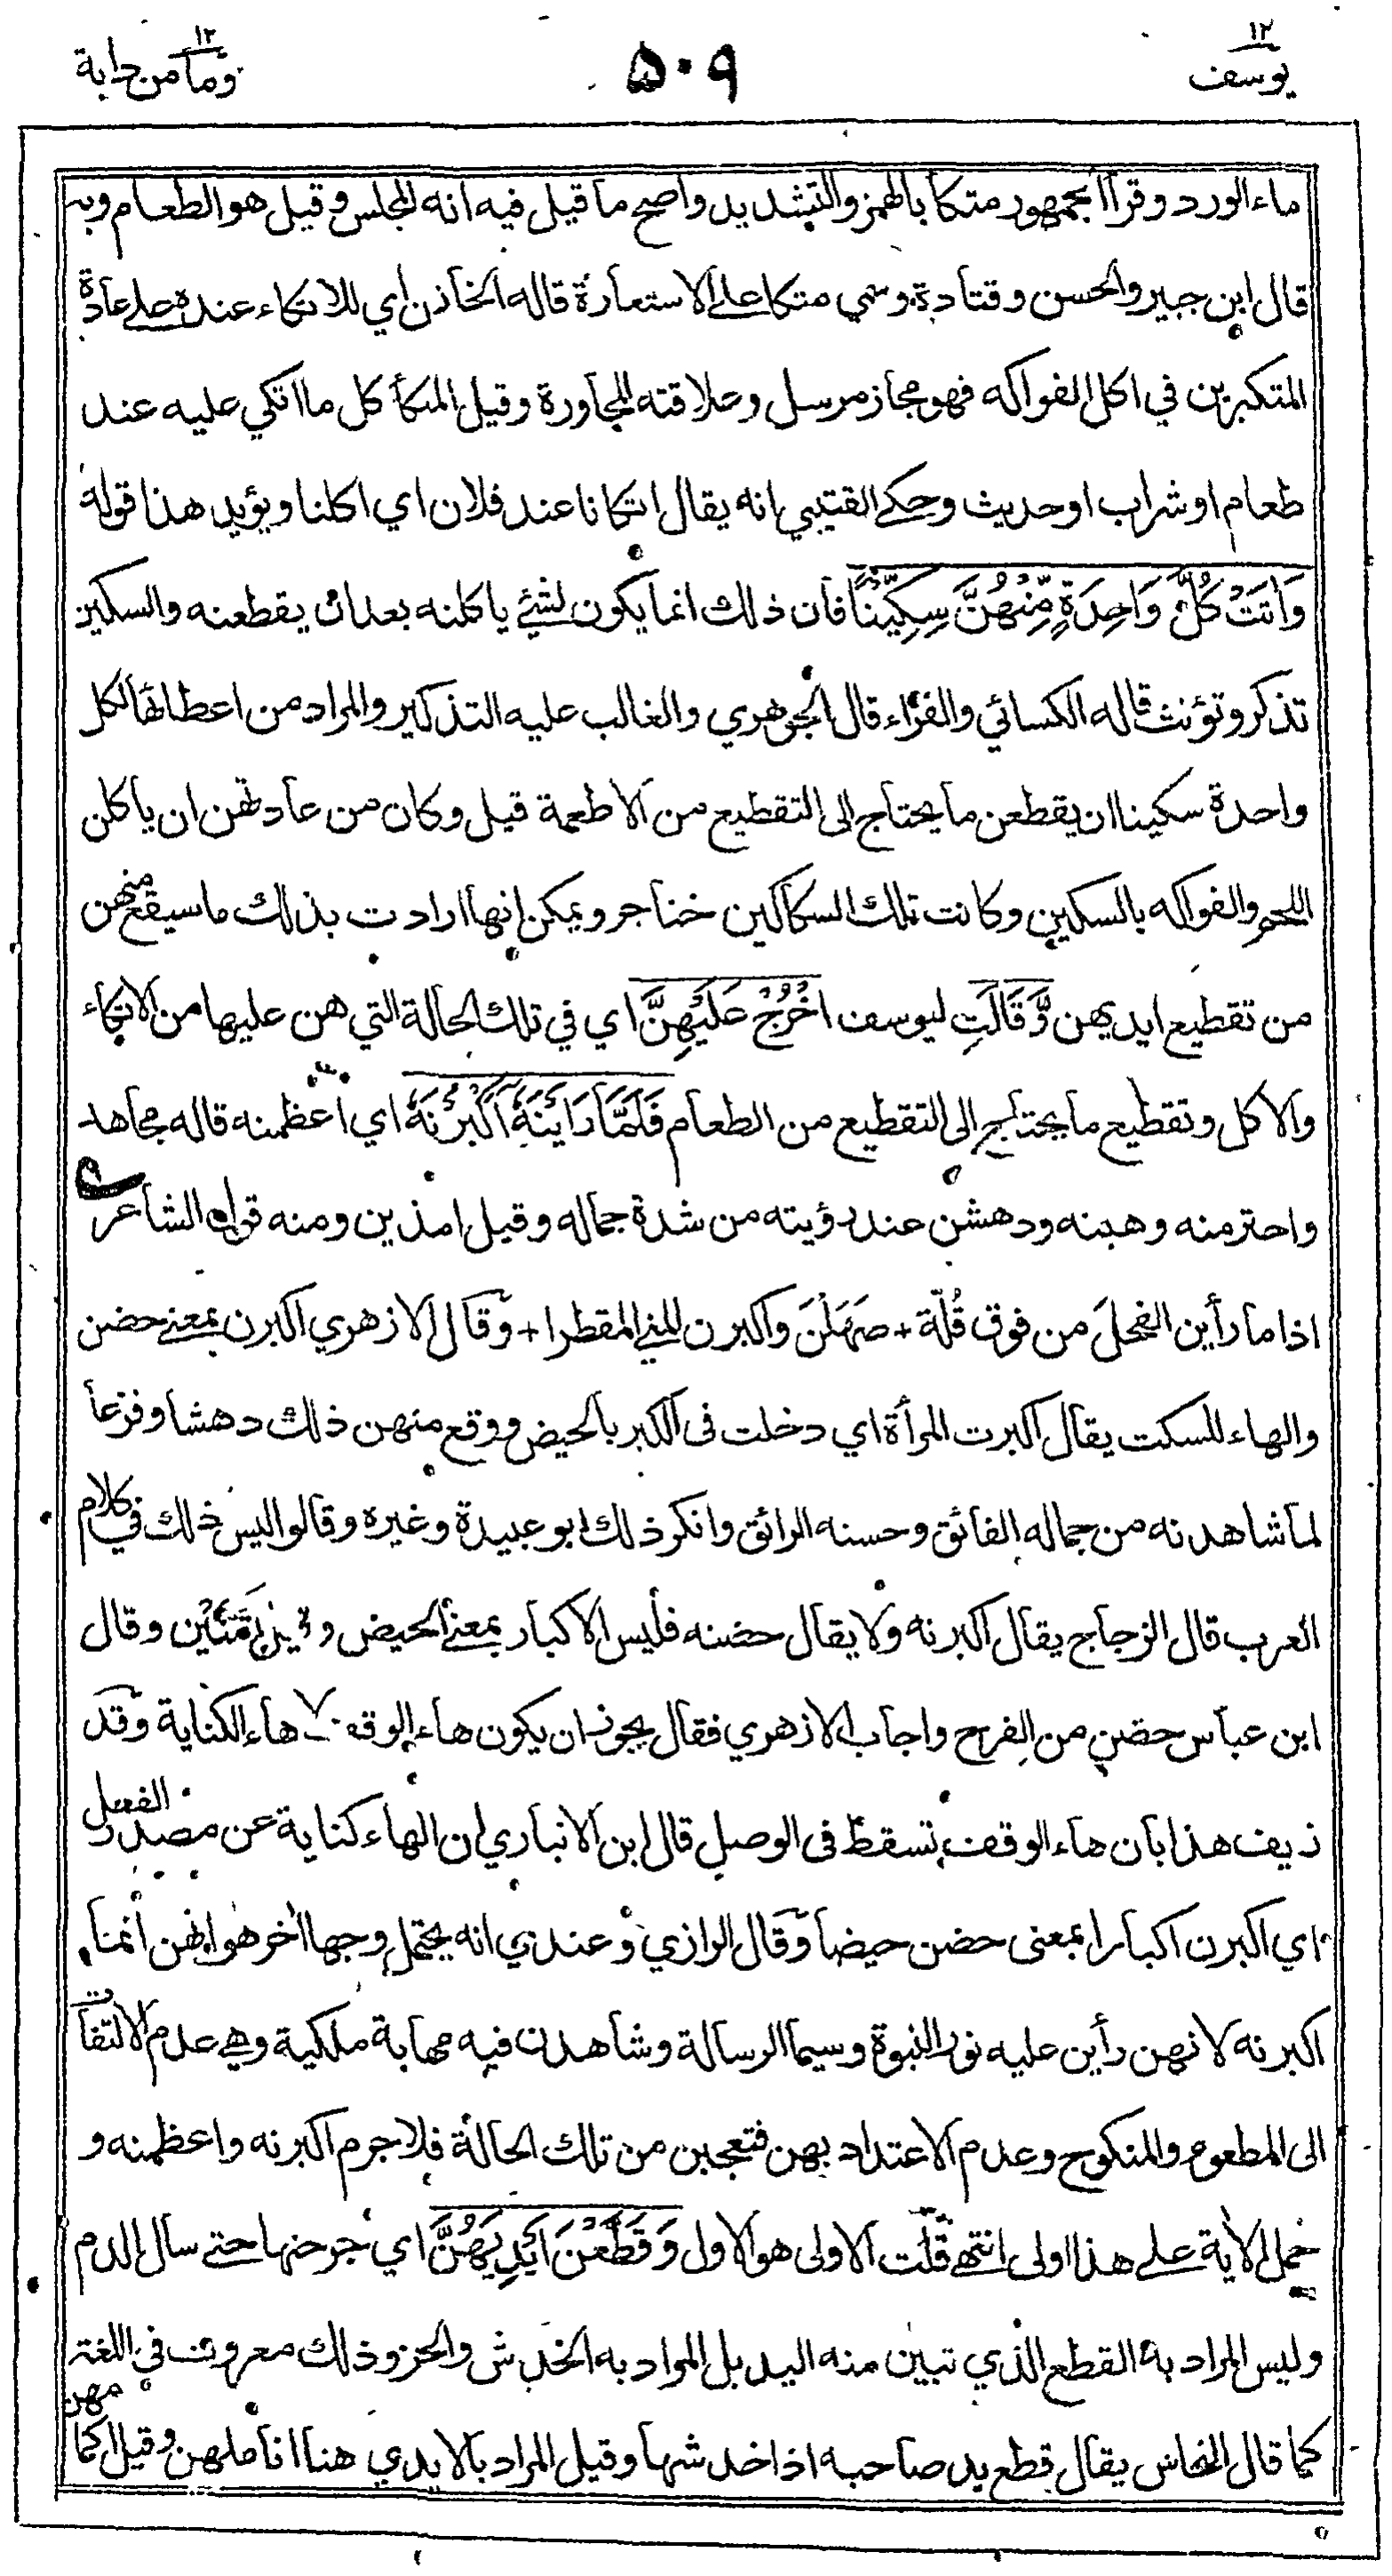 ١٢
يوسف
٥٠٩
١٢
وما من دابة
ماء الورد وقرأ الجمهور متكأ بالهمز والتشديد واصح ما قيل فيه انه المجلس وقيل هو الطعام وبه
قال ابن جبير والحسن وقتادة وسمي متكا على الاستعارة قاله الخازن اي للاتكاء عنده على عادة
المتكبرين في اكل الفواكه فهو مجاز مرسل وعلاقته المجاورة وقيل المتكأ كل ما اتكي عليه عند
طعام او شراب او حديث وحكى القتيبي انه يقال اتكانا عند فلان اي اكلنا ويؤيد هذا قوله
وَاٰتَتْ كُلَّ وَاحِدَةٍ مِّنْهُنَّ سِكِّيْنًا فان ذلك انما يكون لشئ ياكلنه بعدان يقطعنه والسكين
تذكر وتؤنث قاله الكسائي والفراء قال الجوهري والغالب عليه التذكير والمراد من اعطائها لكل
واحدة سكينا ان يقطعن ما يحتاج الى التقطيع من الاطعمة قيل وكان من عادتهن ان ياكلن
اللحم والفواكه بالسكين وكانت تلك السكاكين خناجر ويمكن انها ارادت بذلك ما سيقع منهن
من تقطيع ايديهن وَّقَالَتِ ليوسف اخْرُجْ عَلَيْهِنَّ اي في تلك الحالة التي هن عليها من الاتكاء
والاكل وتقطيع ما يحتاج الى التقطيع من الطعام فَلَمَّا رَاَيْنَهٗ اَكْبَرْنَهٗ اي اعظمنه قاله مجاهد
واحترمنه وهبنه ودهشن عند رؤيته من شدة جماله وقيل امذين ومنه قول الشاعر
اذا ما رأين الفحلَ من فوق قُلّة + صَهَلْنَ واكبرن المني المقطرا + وقال الازهري اكبرن بمعنى حضن
والهاء للسكت يقال اكبرت المرأة اي دخلت فى الكبر بالحيض ووقع منهن ذلك دهشا وفزعا
لما شاهدنه من جماله الفائق وحسنه الرائق وانكر ذلك ابو عبيدة وغيره وقالوا ليس ذلك في كلام
العرب قال الزجاج يقال اكبرنه ولا يقال حضنه فليس الاكبار بمعنى الحيض وقال
ابن عباس حضن من الفرح واجاب الازهري فقال يجوز ان يكون هاء الوقف لا هاء الكناية وقد
زيف هذا بان هاء الوقف تسقط فى الوصل قال ابن الانباري ان الهاء كناية عن مصدر الفعل
اي اكبرن اكبارا بمعنى حضن حيضا وقال الرازي وعندي انه يحتمل وجها اٰخر هو انهن انما
اكبرنه لانهن رأين عليه نور النبوة وسيما الرسالة وشاهدن فيه مهابة ملكية وهي عدم الالتفات
الى المطعوم والمنكوح وعدم الاعتداد بهن فتعجبن من تلك الحالة فلاجرم اكبرنه واعظمنه و
حمل الأية على هذا اولى انتهى قلت الاولى هو الاول وَقَطَّعْنَ اَيْدِيَهُنَّ اي جرحنها حتى سال الدم
وليس المراد به القطع الذي تبين منه اليد بل المراد به الخدش والحز وذلك معروف في اللغة
كما قال النحاس يقال قطع يد صاحبه اذا خدشها وقيل المراد بالايدي هنا اناملهن وقيل اكمامهن